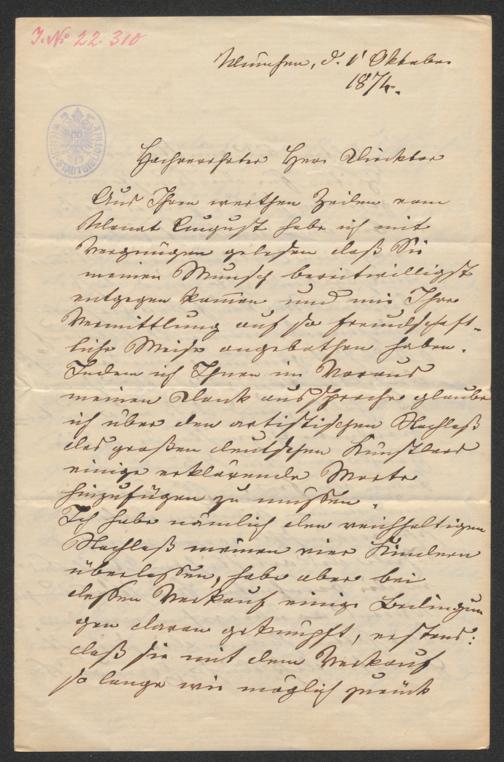 J. No 22.310
München, d. 1' Oktober
1874.
Hochverehrter Herr Direktor
Aus Ihren werthen Zeilen vom
Monat August habe ich mit
Vergnügen gelesen daß Sie
meinen Wunsch bereitwilligst
entgegen kamen und mir Ihre
Vermittlung auf so freundschaft-
liche Weise angebothen haben.
Indem ich Ihnen im Voraus
meinen Dank ausspreche glaube
ich über den artistischen Nachlaß
des großen deutschen Künstlers
einige erklärende Worte
hinzufügen zu müssen.
Ich habe nämlich den reichhaltigen
Nachlaß meinen vier Kindern
überlassen, habe aber bei
dessen Verkauf einige Bedingun
gen daran geknüpft, erstens:
daß sie mit dem Verkauf
so lange wie möglich zurück